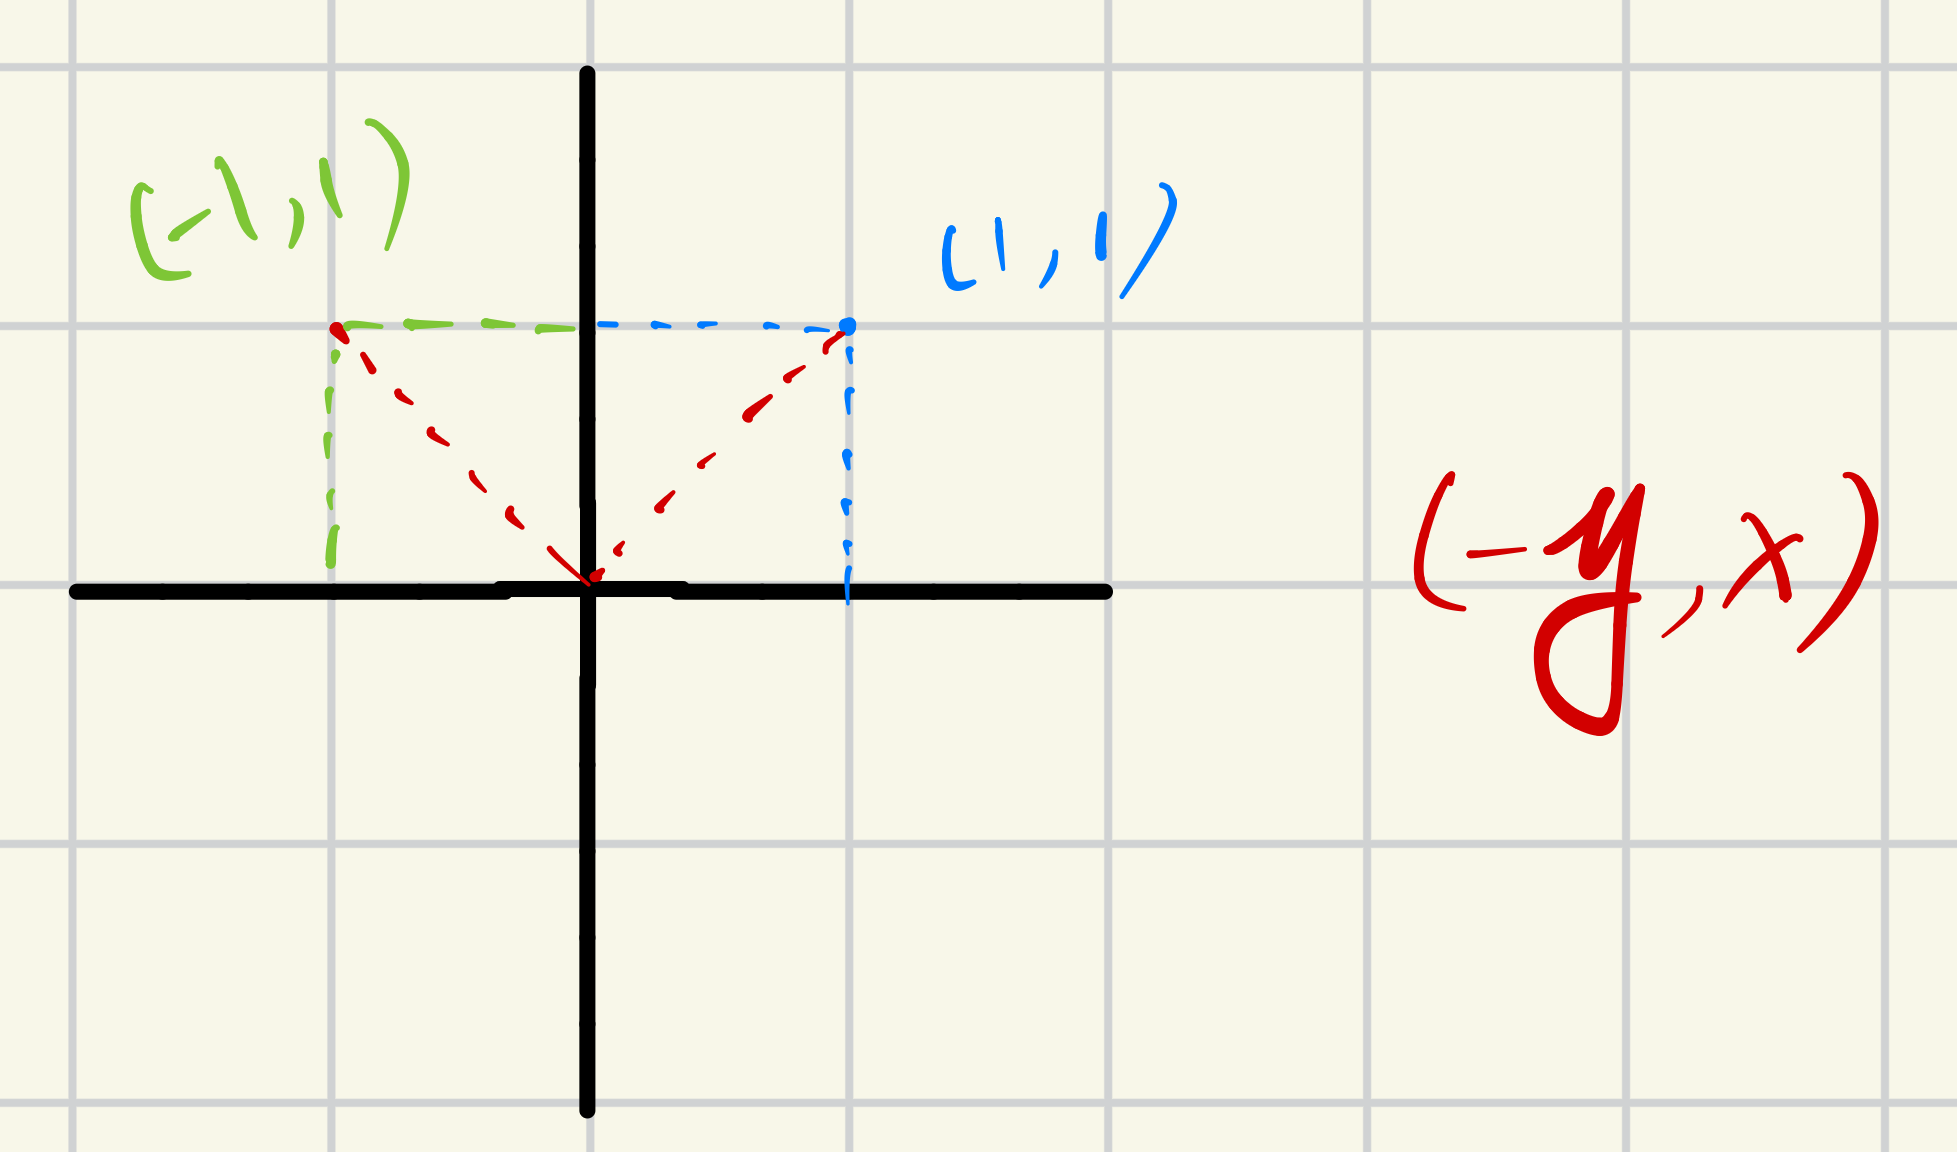 (-1,1)
(1,1)
(-y,x)